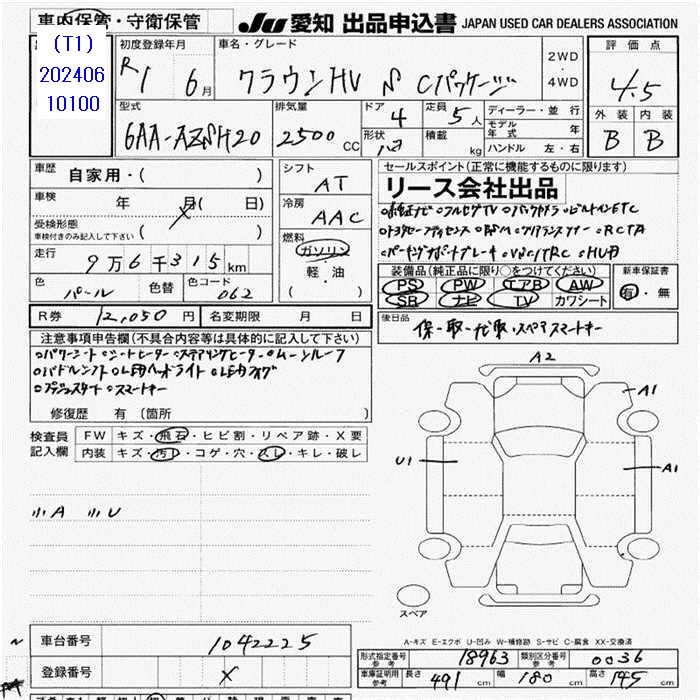 車内保管・守衛保管
JU 愛知 出品申込書 JAPAN USED CAR DEALERS ASSOCIATION
(T1)
202406
10100
初度登録年月
R1 6月
車名・グレード
クラウンHV S Cパッケージ
2WD・4WD
評価点
4.5
外装 内装
B B
型式
6AA-AZSH20
排気量
2500 CC
ドア 4
形状
定員 5人
積載 kg
ディーラー・並行
モデル年式 年
ハンドル 左・右
車歴 自家用・( )
車検 年 月( 日)
受検形態
車検付きのみ記入して下さい ( )
シフト AT
冷房 AAC
燃料 ガソリン・軽・油 ( )
走行
9万6千315km
色 パール 色替 色コード 062
R券 12,050円 名変期限 月 日
セールスポイント(正常に機能するものに限ります)
リース会社出品
○純正ナビ○フルセグTV○バックカメラ○ビルトインETC
○RCTA
○パーキングサポートブレーキ○VSC/TRC○HUD
装備品(純正品に限り○をつけてください)
PS PW エアB AW
SR ナビ TV カワシート
新車保証書
有・無
後日品
保・取・ナビ取・スペアスマートキー
注意事項申告欄(不具合内容等は具体的に記入して下さい)
○パワーシート○シートヒーター○ステアリングヒーター○ムーンルーフ
○パドルシフト○LEDヘッドライト○LEDフォグ
○プッシュスタート○スマートキー
修復歴 有 (箇所 )
検査員記入欄
FW キズ・飛石・ヒビ割・リペア跡・X要
内装 キズ・汚レ・コゲ・穴・スレ・キレ・破レ
小A 小U
A2
A1
U1
A1
スペア
A-キズ E-エクボ U-凹み W-補修跡 S-サビ C-腐食 XX-交換済
車台番号 1042225
登録番号
形式指定番号 参考 18963 類別区分番号 参考 0036
車庫証明用 参考 長さ 491cm 幅 180cm 高さ 145cm